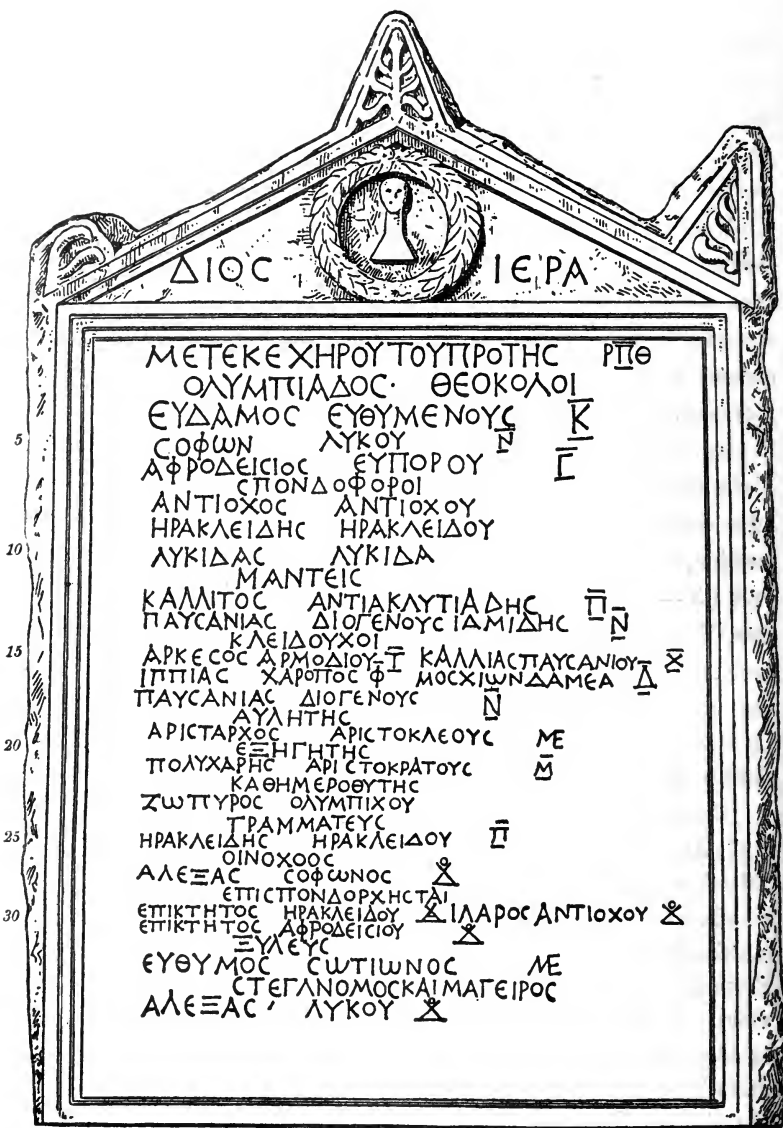 ΔΙΟϹ ΙΕΡΑ
ΜΕΤΕΚΕΧΗΡΟΥΤΟΥΠΡΟΤΗϹ ΡΠ̅Θ
ΟΛΥΜΠΙΑΔΟϹ· ΘΕΟΚΟΛΟΙ
ΕΥΔΑΜΟϹ ΕΥΘΥΜΕΝΟΥϹ Κ̅
5 ϹΟΦΩΝ ΛΥΚΟΥ Ν̅
ΑΦΡΟΔΕΙϹΙΟϹ ΕΥΠΟΡΟΥ Γ̅
ϹΠΟΝΔΟΦΟΡΟΙ
ΑΝΤΙΟΧΟϹ ΑΝΤΙΟΧΟΥ
ΗΡΑΚΛΕΙΔΗϹ ΗΡΑΚΛΕΙΔΟΥ
10 ΛΥΚΙΔΑϹ ΛΥΚΙΔΑ
ΜΑΝΤΕΙϹ
ΚΑΛΛΙΤΟϹ ΑΝΤΙΑΚΛΥΤΙΑΔΗϹ Π̅
ΠΑΥϹΑΝΙΑϹ ΔΙΟΓΕΝΟΥϹΙΑΜΙΔΗϹ Ν̅
ΚΛΕΙΔΟΥΧΟΙ
15 ΑΡΚΕϹΟϹ ΑΡΜΟΔΙΟΥ Τ̅ ΚΑΛΛΙΑϹΠΑΥϹΑΝΙΟΥ Χ̅
ΙΠΠΙΑϹ ΧΑΡΟΠΟϹ Φ̅ ΜΟϹΧΙΩΝΔΑΜΕΑ Δ̅
ΠΑΥϹΑΝΙΑϹ ΔΙΟΓΕΝΟΥϹ Ν̅
ΑΥΛΗΤΗϹ
ΑΡΙϹΤΑΡΧΟϹ ΑΡΙϹΤΟΚΛΕΟΥϹ ΜΕ
20 ΕΞΗΓΗΤΗϹ
ΠΟΛΥΧΑΡΗϹ ΑΡΙϹΤΟΚΡΑΤΟΥϹ Μ̅
ΚΑΘΗΜΕΡΟΘΥΤΗϹ
ΖΩΠΥΡΟϹ ΟΛΥΜΠΙΧΟΥ
ΓΡΑΜΜΑΤΕΥϹ
25 ΗΡΑΚΛΕΙΔΗϹ ΗΡΑΚΛΕΙΔΟΥ Π̅
ΟΙΝΟΧΟΟϹ
ΑΛΕΞΑϹ ϹΟΦΩΝΟϹ
ΕΠΙϹΠΟΝΔΟΡΧΗϹΤΑΙ
30 ΕΠΙΚΤΗΤΟϹ ΗΡΑΚΛΕΙΔΟΥ ΙΛΑΡΟϹΑΝΤΙΟΧΟΥ
ΕΠΙΚΤΗΤΟϹ ΑΦΡΟΔΕΙϹΙΟΥ
ΞΥΛΕΥϹ
ΕΥΘΥΜΟϹ ϹΩΤΙΩΝΟϹ ΜΕ
ϹΤΕΓΑΝΟΜΟϹΚΑΙΜΑΓΕΙΡΟϹ
ΑΛΕΞΑϹ ΛΥΚΟΥ